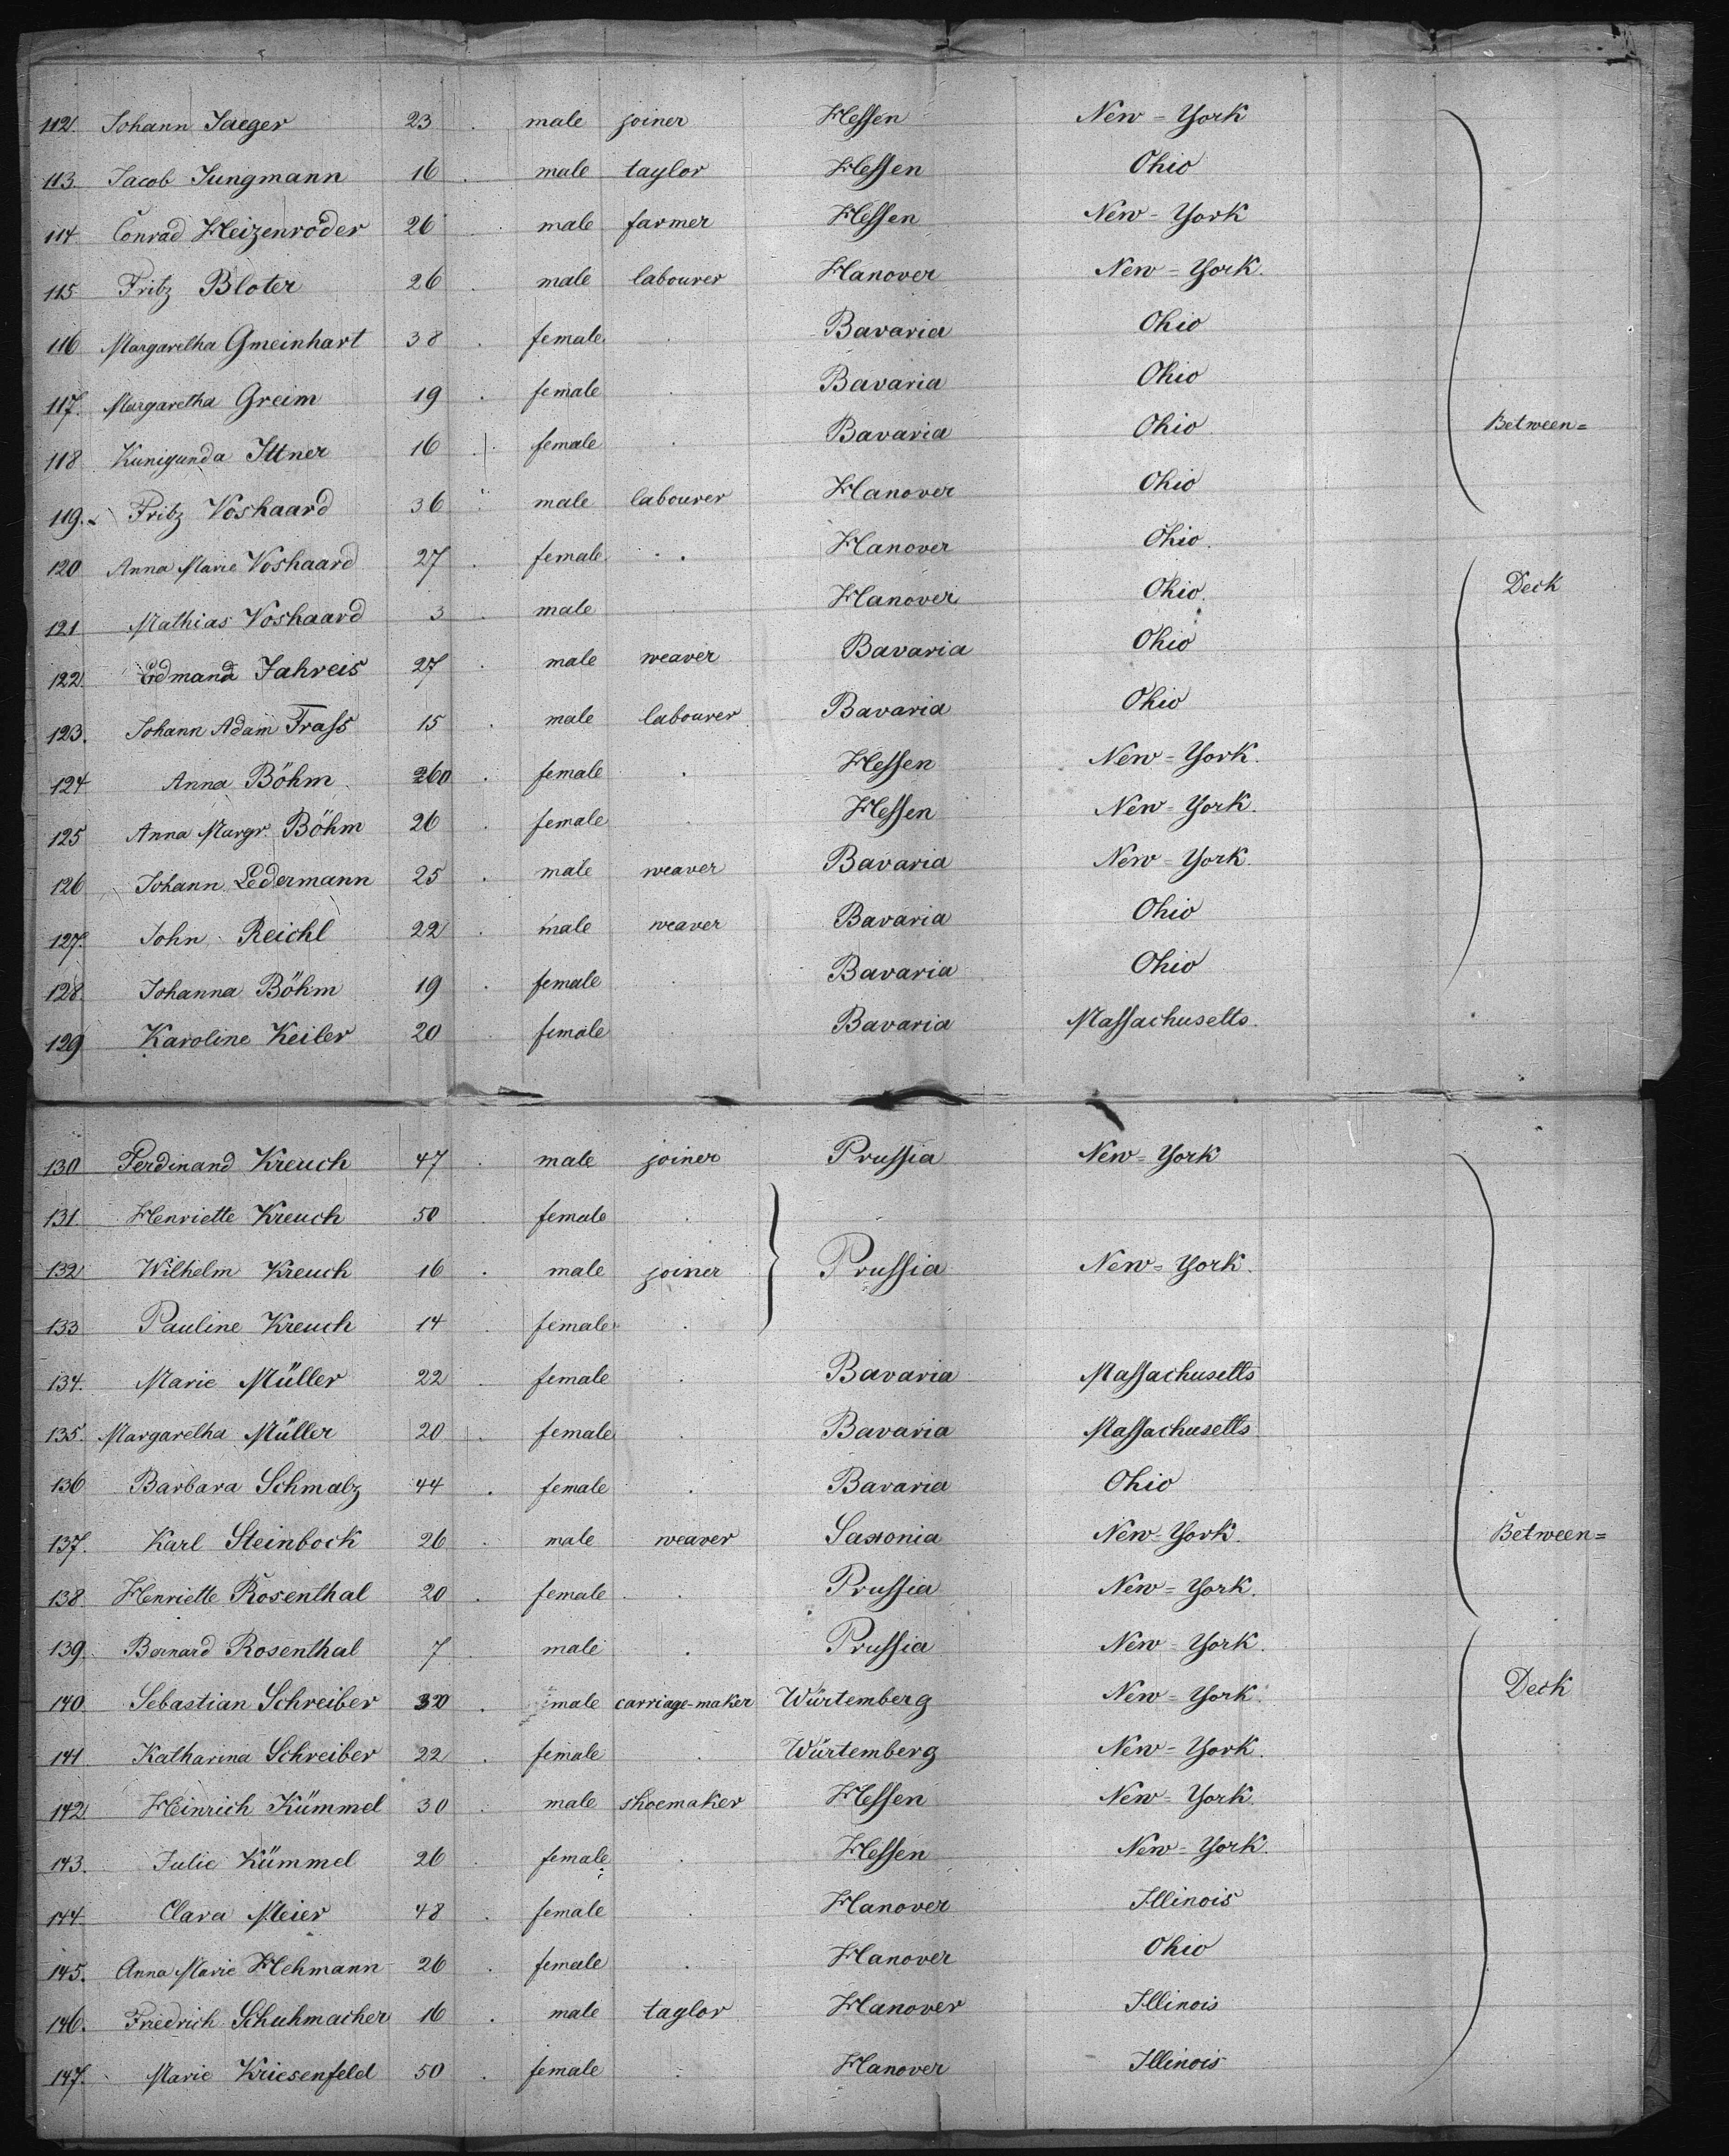 112. Johann Jaeger 23 male joiner Hessen New=York
113. Jacob Jungmann 16 male taylor Hessen Ohio
114 Conrad Heizenröder 26 male farmer Hessen New-York
115 Fritz Bloter 26 male labourer Hanover New=York.
116 Margaretha Gmeinhart 38 female Bavaria Ohio
117. Margaretha Greim 19 female Bavaria Ohio
118 Kunigunda Ittner 16 female Bavaria Ohio Between=
119. Fritz Voshaard 36 male labourer Hanover Ohio
120 Anna Marie Voshaard 27 female Hanover Ohio.
121 Mathias Voshaard 3 male Hanover Ohio. Deck
122. Edmand Jahreis 27 male weaver Bavaria Ohio
123. Johann Adam Frass 15 male labourer Bavaria Ohio
124 Anna Böhm female Hessen New=York.
125 Anna Margr. Böhm 26 female Hessen New=York.
126 Johann Ledermann 25 male weaver Bavaria New=York.
127. John Reichl 22 male weaver Bavaria Ohio
128. Johanna Böhm 19 female Bavaria Ohio
129 Karoline Keiler 20 female Bavaria Massachusetts.
130 Ferdinand Kreuch 47 male joiner Prussia New=York
131 Henriette Kreuch 50 female
132 Wilhelm Kreuch 16 male joiner Prussia New=York.
133 Pauline Kreuch 14 female
134. Marie Müller 22 female Bavaria Massachusetts
135. Margaretha Müller 20 female Bavaria Massachusetts
136 Barbara Schmalz 44 female Bavaria Ohio
137. Karl Steinbock 26 male weaver Saxonia New=York. Between=
138. Henriette Rosenthal 20 female Prussia New=York.
139. Bernard Rosenthal 7 male Prussia New=York.
140. Sebastian Schreiber male carriage-maker Würtemberg New=York. Deck
141 Katharina Schreiber 22 female Würtemberg New=York.
142 Heinrich Kümmel 30 male shoemaker Hessen New=York.
143. Julie Kümmel 26 female Hessen New=York.
144. Clara Meier 48 female Hanover Illinois
145. Anna Marie Hehmann 26 female Hanover Ohio
146. Friedrich Schuhmacher 16 male taylor Hanover Illinois
147. Marie Kriesenfeld 50 female Hanover Illinois